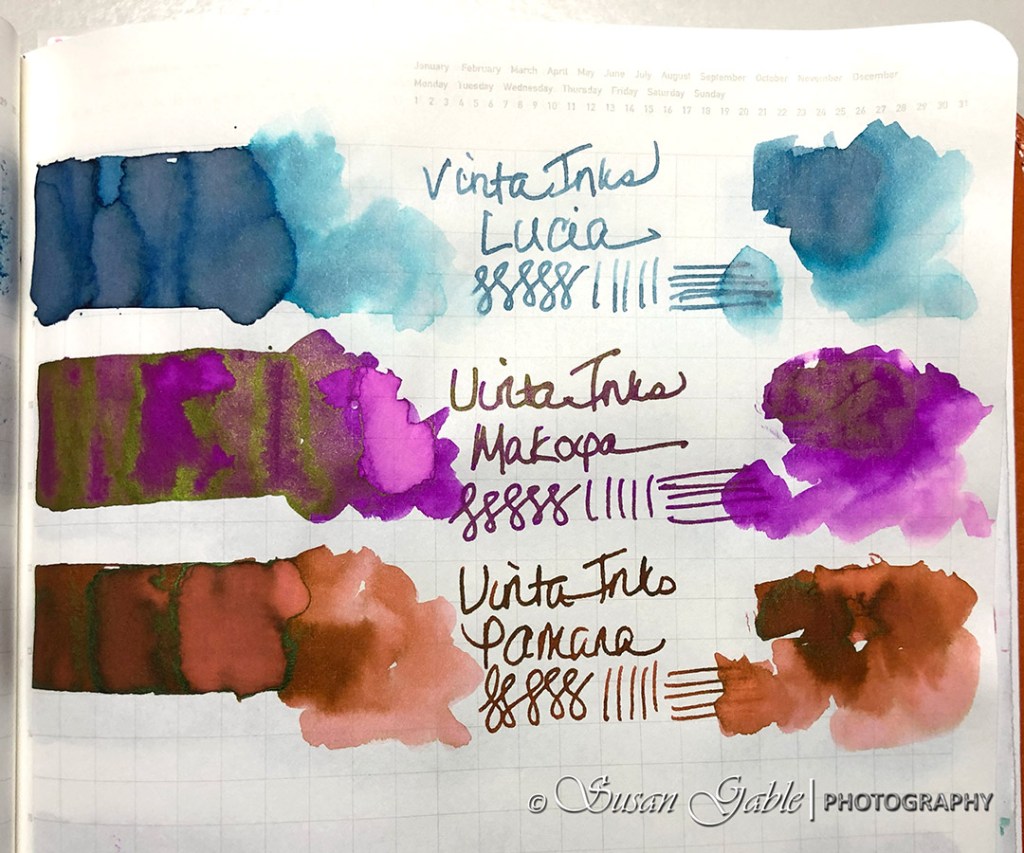 January February March April May June July August September October November December
Monday Tuesday Wednesday Thursday Friday Saturday Sunday
1 2 3 4 5 6 7 8 9 10 11 12 13 14 15 16 17 18 19 20 21 22 23 24 25 26 27 28 29 30 31
Vinta Inks
Lucia
Vinta Inks
Makopa
Vinta Inks
Pamana
© Susan Gable | PHOTOGRAPHY